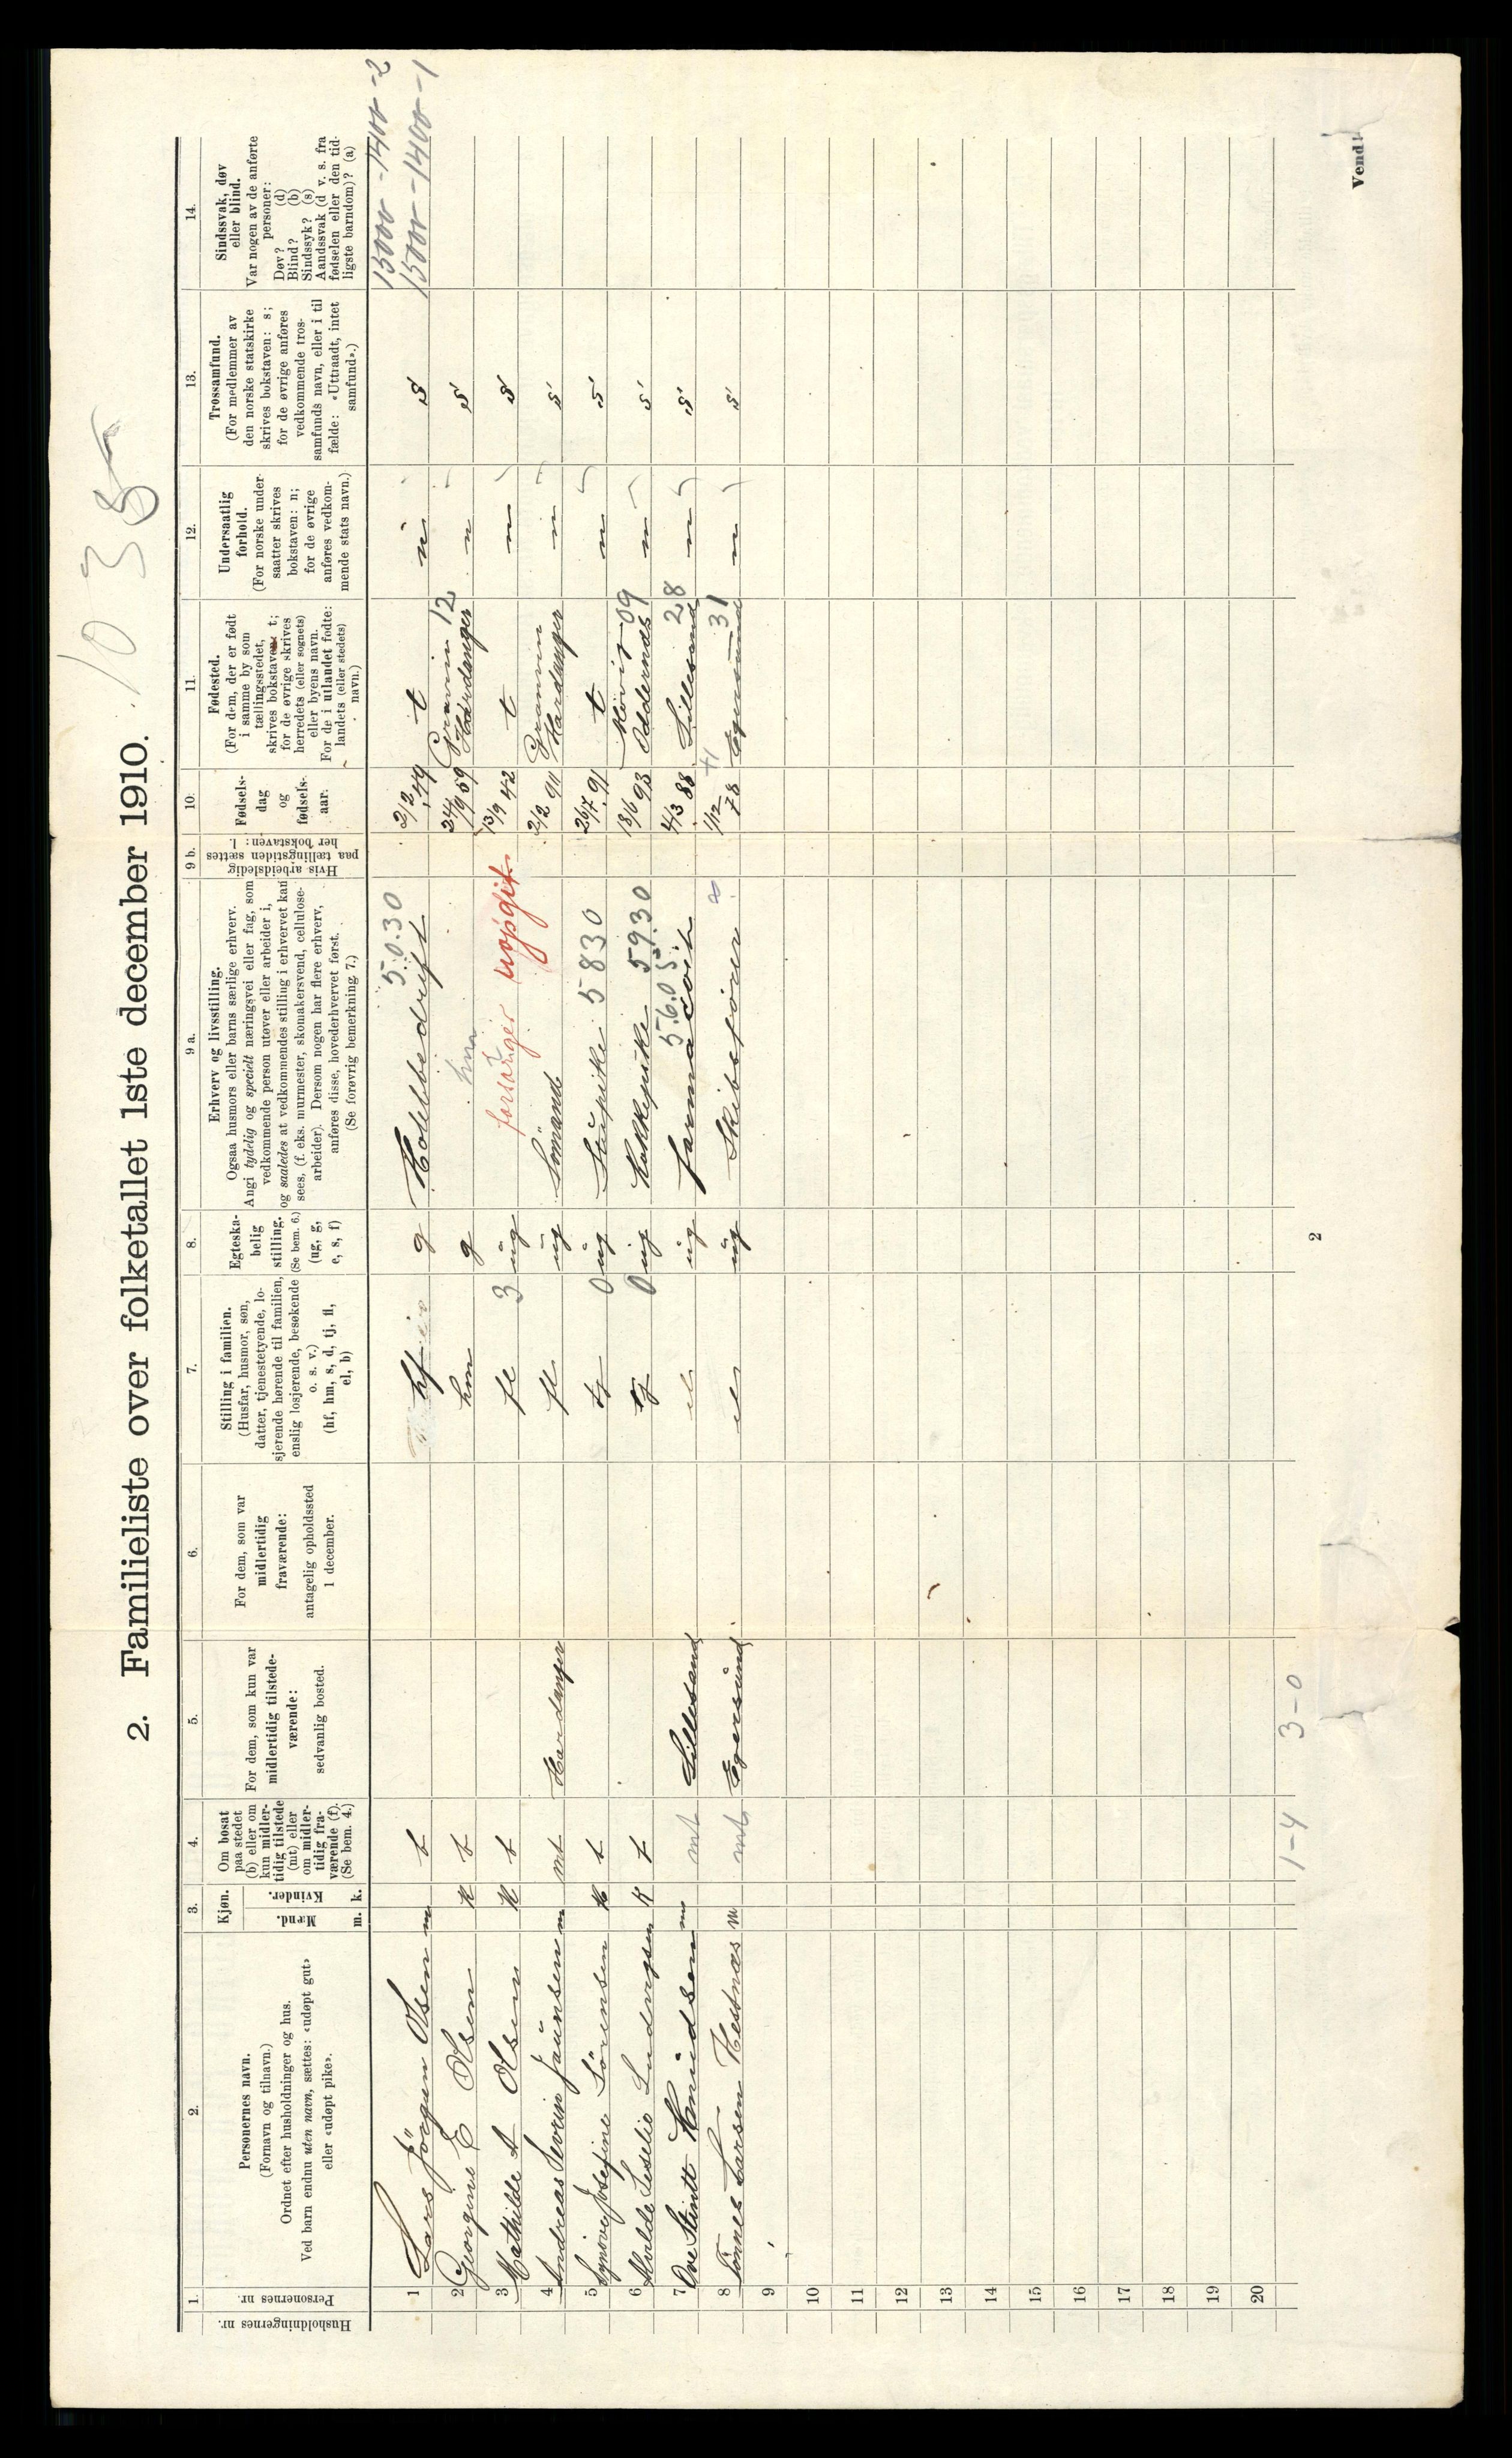 10 35
2. Familieliste over folketallet 1ste december 1910.
1.
Husholdningernes nr.
Personernes nr.
2.
Personernes navn.
(Fornavn og tilnavn.)
Ordnet efter husholdninger og hus.
Ved barn endnu uten navn, sættes: «udøpt gut»
eller «udøpt pike».
3.
Kjøn.
Mænd.
Kvinder.
m. k.
4.
Om bosat
paa stedet
(b) eller om
kun midler-
tidig tilstede
(mt) eller
om midler-
tidig fra-
værende (f).
(Se bem. 4.)
5.
For dem, som kun var
midlertidig tilstede-
værende:
sedvanlig bosted.
6.
For dem, som var
midlertidig
fraværende:
antagelig opholdssted
1 december.
7.
Stilling i familien.
(Husfar, husmor, søn,
datter, tjenestetyende, lo-
sjerende hørende til familien,
enslig losjerende, besøkende
o. s. v.)
(hf, hm, s, d, tj, fl,
el, b)
8.
Egteska-
belig
stilling.
(Se bem. 6.)
(ug, g,
e, s, f)
9 a.
Erhverv og livsstilling.
Ogsaa husmors eller barns særlige erhverv.
Angi tydelig og specielt næringsvei eller fag, som
vedkommende person utøver eller arbeider i,
og saaledes at vedkommendes stilling i erhvervet kan
sees, (f. eks. murmester, skomakersvend, cellulose-
arbeider). Dersom nogen har flere erhverv,
anføres disse, hovederhvervet først.
(Se forøvrig bemerkning 7.)
9 b.
Hvis arbeidsledig
paa tællingstiden sættes
her bokstaven: l.
10.
Fødsels-
dag
og
fødsels-
aar.
11.
Fødested.
(For dem, der er født
i samme by som
tællingsstedet,
skrives bokstaven: t;
for de øvrige skrives
herredets (eller sognets)
eller byens navn.
For de i utlandet fødte:
landets (eller stedets)
navn.)
12.
Undersaatlig
forhold.
(For norske under-
saatter skrives
bokstaven: n;
for de øvrige
anføres vedkom-
mende stats navn.)
13.
Trossamfund.
(For medlemmer av
den norske statskirke
skrives bokstaven: s;
for de øvrige anføres
vedkommende tros-
samfunds navn, eller i til
fælde: «Uttraadt, intet
samfund».)
14.
Sindssvak, døv
eller blind.
Var nogen av de anførte
personer:
Døv? (d)
Blind? (b)
Sindssyk? (s)
Aandssvak (d. v. s. fra
fødselen eller den tid-
ligste barndom)? (a)
15000 - 1400 - 2
15000 - 1400 - 1
5.0.30
1 Lars Jörgen Olsen m b hf g Hotelbedrift 2/2 49 t n s
2 Georgine E Olsen k b hm g hm 24/9 59 Granvin 12 Hardanger n s
3 Mathilde A Olsen k b fl 3 ug forsörger uopgit 13/9 42 t n s
4 Andreas Severin Jaunsen m mt Hardanger fl ug Sömand 2/2 90 Granvin Hardanger n s
5 Synove Josefine Sörensen k b tj 0 ug Stupike 5830 26/7 91 t n s
6 Alvilde Leselie Ludvigsen k b tj 0 ug Kokkepike 5930 18/6 93 Møvig 09 Oddernæs n s
7 Ove Stintt Knudsen m mt Lillesand el ug farmaceut 5.6.05 4/3 88 Lillesand 28 n s
8 Tønnes Larsen Hestnæs m mt Egersund el ug Skibsfører 1/12 78 Egersund 31 n s
9
10
11
12
13
14
15
16
17
18
19
20
1-4 3-0
2
Vend!